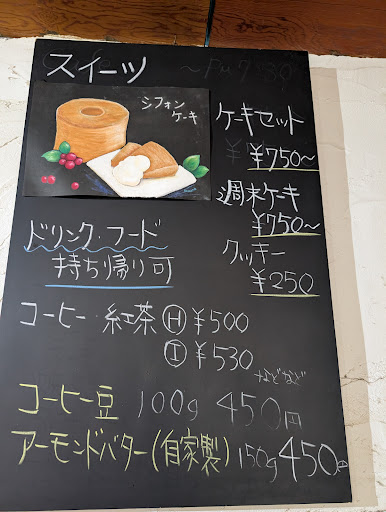 スイーツ
～PM7:30
シフォン
ケーキ
ケーキセット
¥750～
週末ケーキ
¥750～
クッキー
¥250
ドリンク・フード
持ち帰り可
コーヒー 紅茶 Ⓗ ¥500
Ⓘ ¥530
などなど
コーヒー豆 100g 450円
アーモンドバター(自家製) 150g 450円